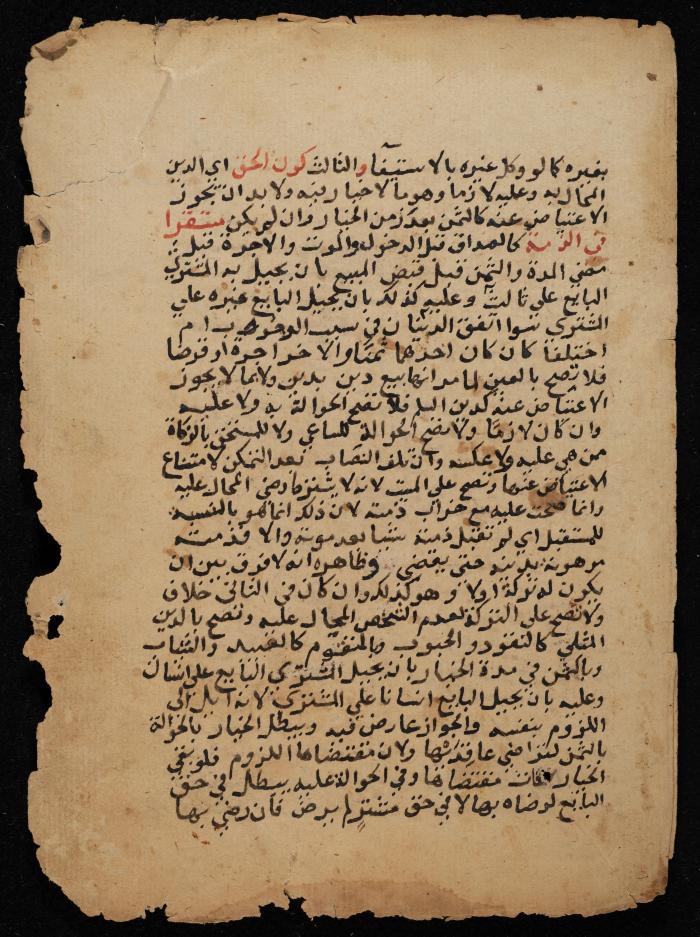 بغيره كما لو وكل غيره بالاستيفآ والثالث كون الحق اي الدين
المحال به وعليه لازما وهو ما لا خيار فيه ولا بد ان يجوز
الاعتياض عنه كالثمن بعد زمن الخيار وان لم يكن مستقرا
في الذمة كالصداق قبل الدخول والموت والاجرة قبل
مضي المدة والثمن قبل قبض المبيع بان يحيل به المشتري
البايع على ثالث وعليه كذلك بان يحيل البايع غيره على
المشتري سوا اتفق الدينان في سبب الوجوب ام
اختلفا كان كان احدهما ثمنا والاخر اجرة او قرضا
فلا تصح بالعين لما مر انها بيع دين بدين ولا بما لا يجوز
الاعتياض عنه كدين السلم فلا تصح الحوالة به ولا عليه
وان كان لازما ولا تصح الحوالة للساعي ولا للمستحق بالزكاة
ممن هي عليه ولا عكسه وان تلف النصاب بعد التمكن لامتناع
الاعتياض عنها وتصح على الميت لانه لا يشترط رضي المحال عليه
وانما صحت عليه مع خراب ذمته لان ذلك انما هو بالنسبة
للمستقبل اي لم تقبل ذمته شيا بعد موته والا فذمته
مرهونة بدينه حتى يقضي وظاهره انه لا فرق بين ان
يكون له تركة اولا وهو كذلك وان كان في الثاني خلاف
ولا تصح على التركة لعدم الشخص المحال عليه وتصح بالدين
المثلي كالنقود والحبوب وبالمتقوم كالعبيد والثياب
وبالثمن في مدة الخيار بان يحيل المشتري البايع على انسان
وعليه بان يحيل البايع انسانا على المشتري لانه آيل الى
اللزوم بنفسه والجواز عارض فيه ويبطل الخيار بالحوالة
بالثمن لتراضي عاقديها ولان مقتضاها اللزوم فلو بقي
الخيار فات مقتضاها وفي الحوالة عليه يبطل في حق
البايع لرضاه بها لا في حق مشتر لم يرض فان رضي بها